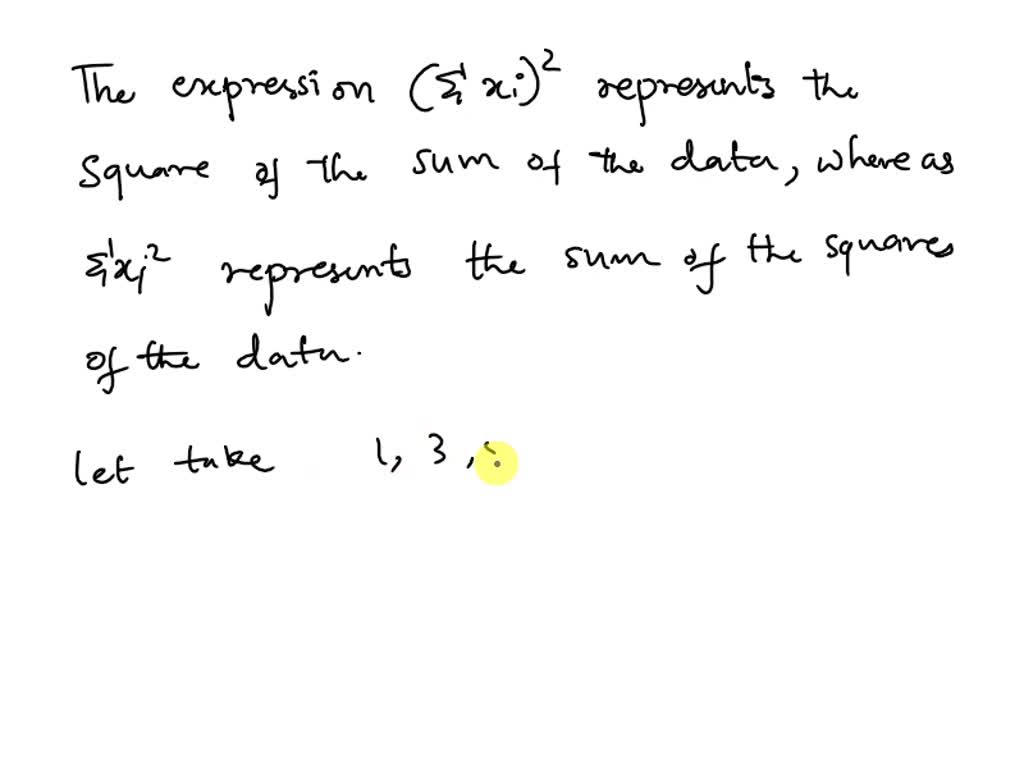 The expression (Σ xi)² represents the
Square of the sum of the data, where as
Σ xi² represents the sum of the squares
of the data.
let take 1, 3,